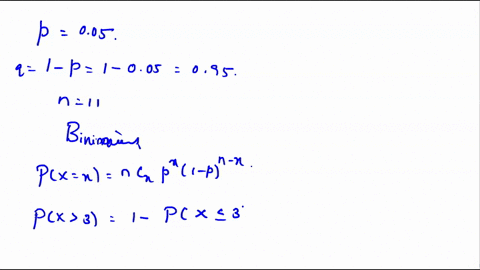 p = 0.05.
q = 1 - p = 1 - 0.05 = 0.95.
n = 11
P(x = x) = n Cx p^x (1-p)^{n-x}.
P(x > 3) = 1 - P( x ≤ 3